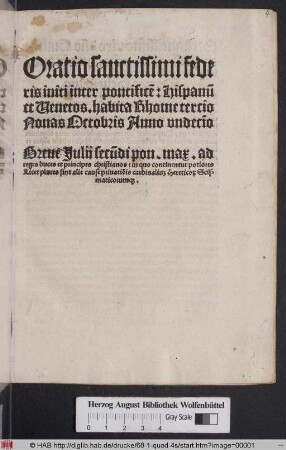 Oratio sanctissimi fede
ris initi inter pontificē : Hispanū
et Venetos. habita Rhome tercio
Nonas Octobris Anno vndecio
Breue Julii secūdi pon. max. ad
reges duces et principes christianos
Licet plures sint alie cause priuatiōis cardinaliū Hereticoꝝ Scis
maticorumꝗ.
Herzog August Bibliothek Wolfenbüttel
Gray Scale
0 1 2 3 4
© HAB http://diglib.hab.de/drucke/68-1-quod-4s/start.htm?image=00001